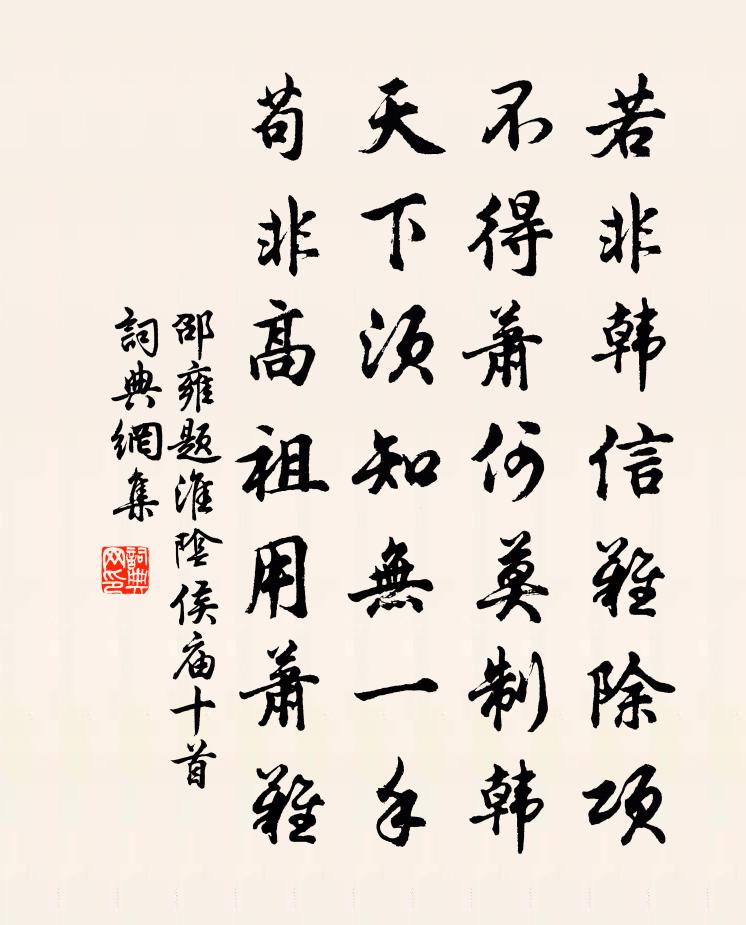 若非韩信難除项
不得蕭何莫制韩
天下须知無一手
苟非高祖用蕭難
邵雍题淮陰侯庙十首
詞典網集
詞典网印